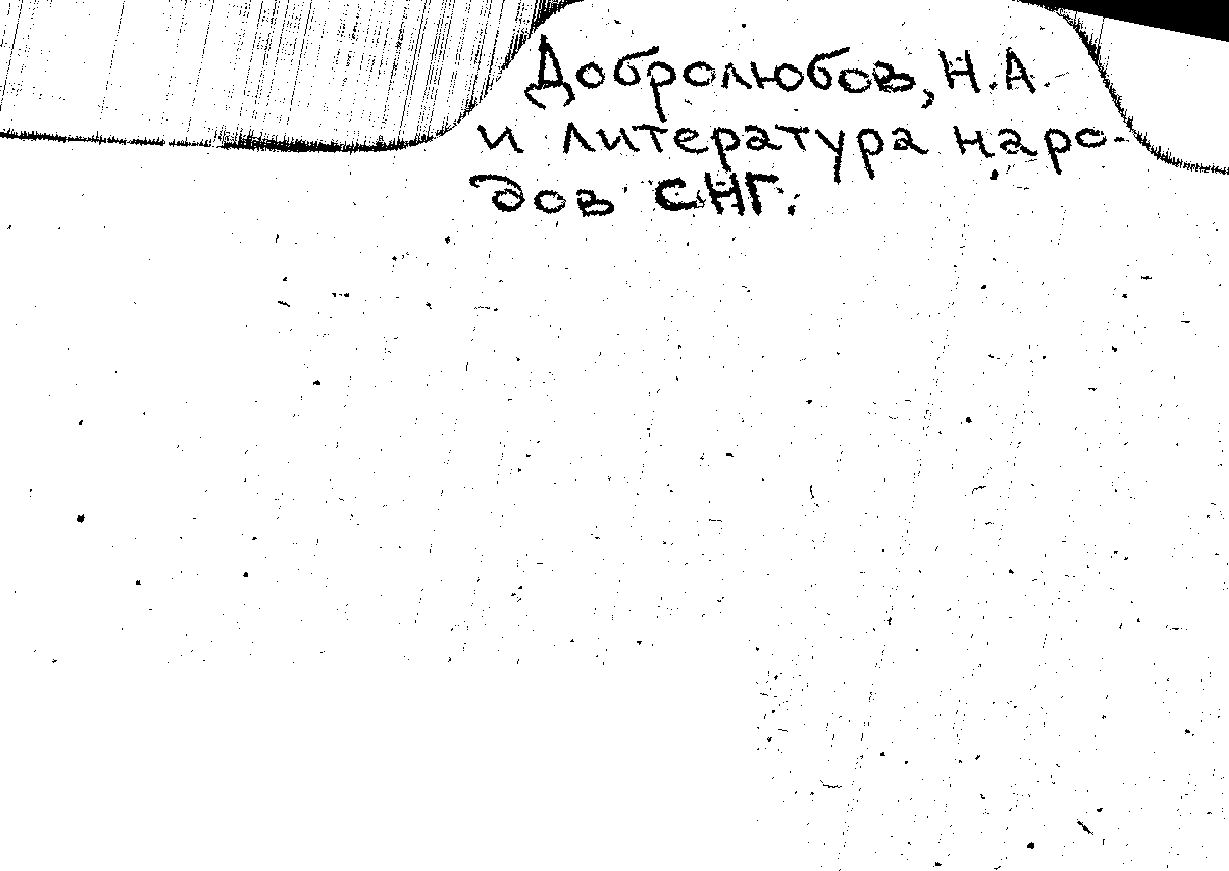 Добролюбов, Н.А.
и литература наро-
дов СНГ.